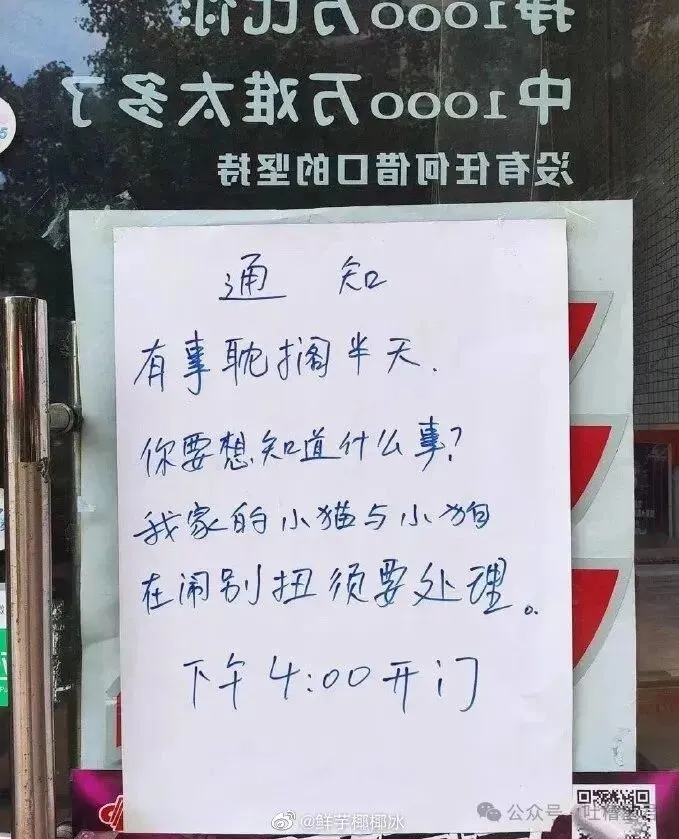 挣1000万比你
中1000万难太多了
没有任何借口的坚持
通 知
有事耽搁半天.
你要想知道什么事?
我家的小猫与小狗
在闹别扭须要处理。
下午4:00开门
@鲜芋椰椰冰
公众号